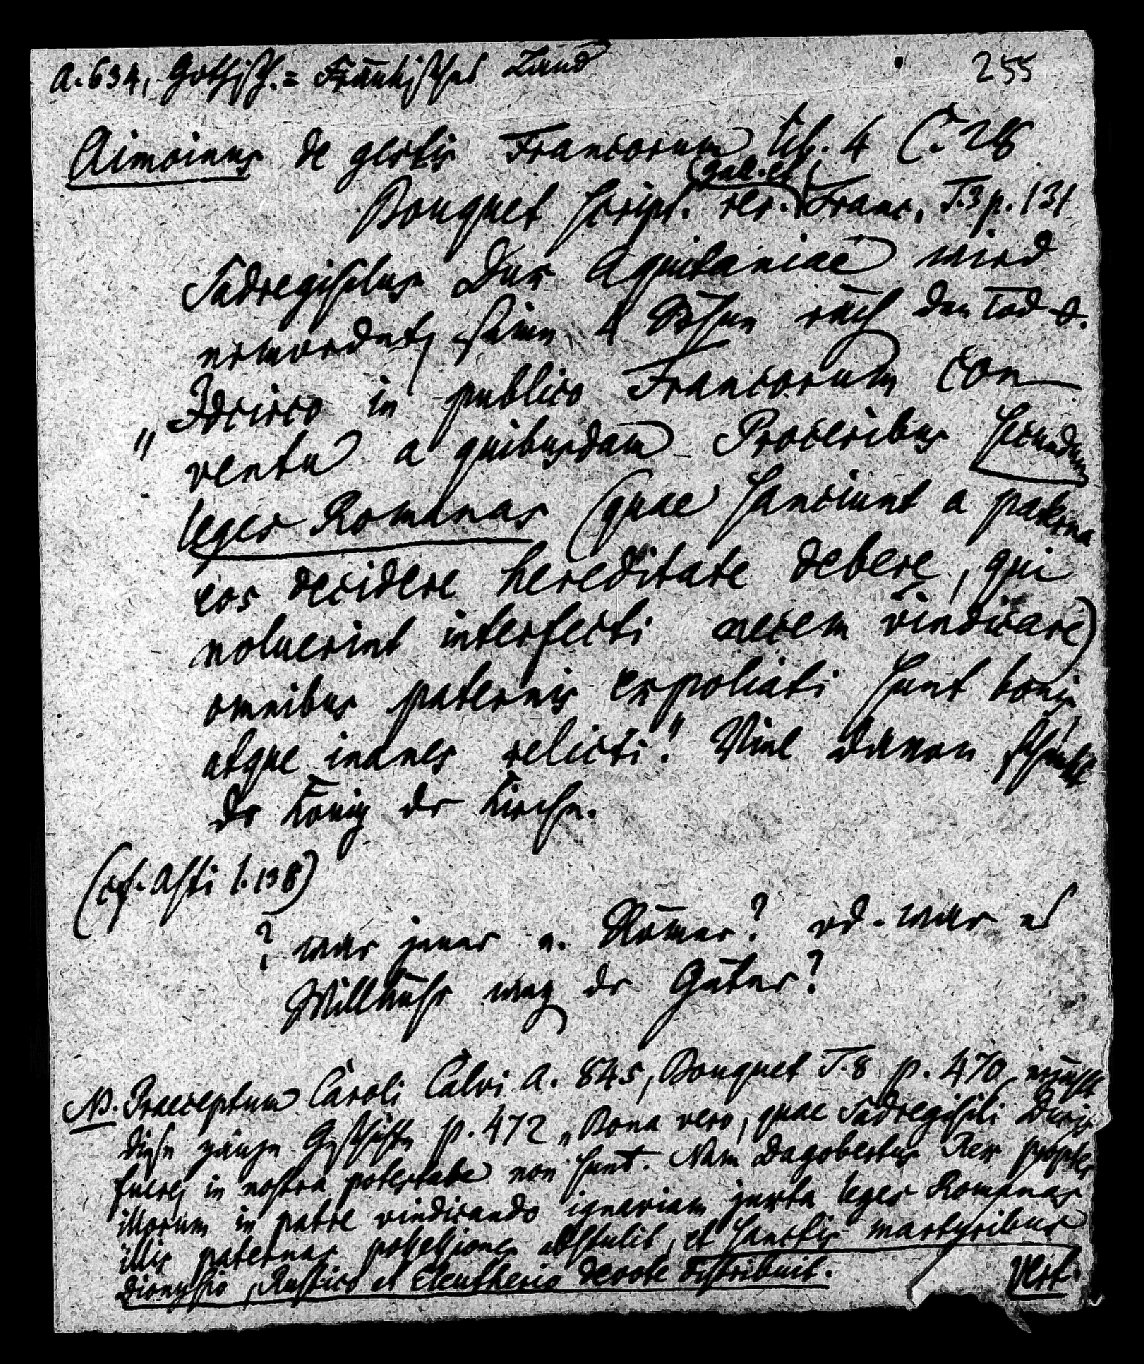 a. 634, Gothisch. = Fränkisches Land
255
Aimoinus de gestis Francorum lib. 4 C. 28
Bouquet script. rer. (gall. et) Franc. T. 3 p. 131
Sadregisilus Dux Aquitaniae wird
ermordet, seine 4 Söhne den Tod
"Idcirco in publico Francorum con-
ventu a quibusdam Proceribus secundum
leges Romanas (quae sanciunt a paterna
eos decidere hereditate debere, qui
noluerint interfecti necem vindicare)
omnibus paternis expoliati sunt bonis
atque inanes relicti." Viel davon schenkt
der König der Kirche.
(cf. Asti 1. 138)
? war jener e. Römer? od. war es
Willkühr weg. der Güter?
NB. Praeceptum Caroli Calvi a. 845, Bouquet T. 8 p. 470,
diese ganze Geschichte p. 472 "Bona vero, quae Sadregisili Ducis
fuere, in nostra potestate non sunt. Nam Dagobertus Rex propter
illorum in patre vindicando ignaviam juxta leges Romanas
illis paternas possessiones abstulit, et sanctis martyribus
Dionysio, Rustico et Eleutherio devote distribuit.
Vert.